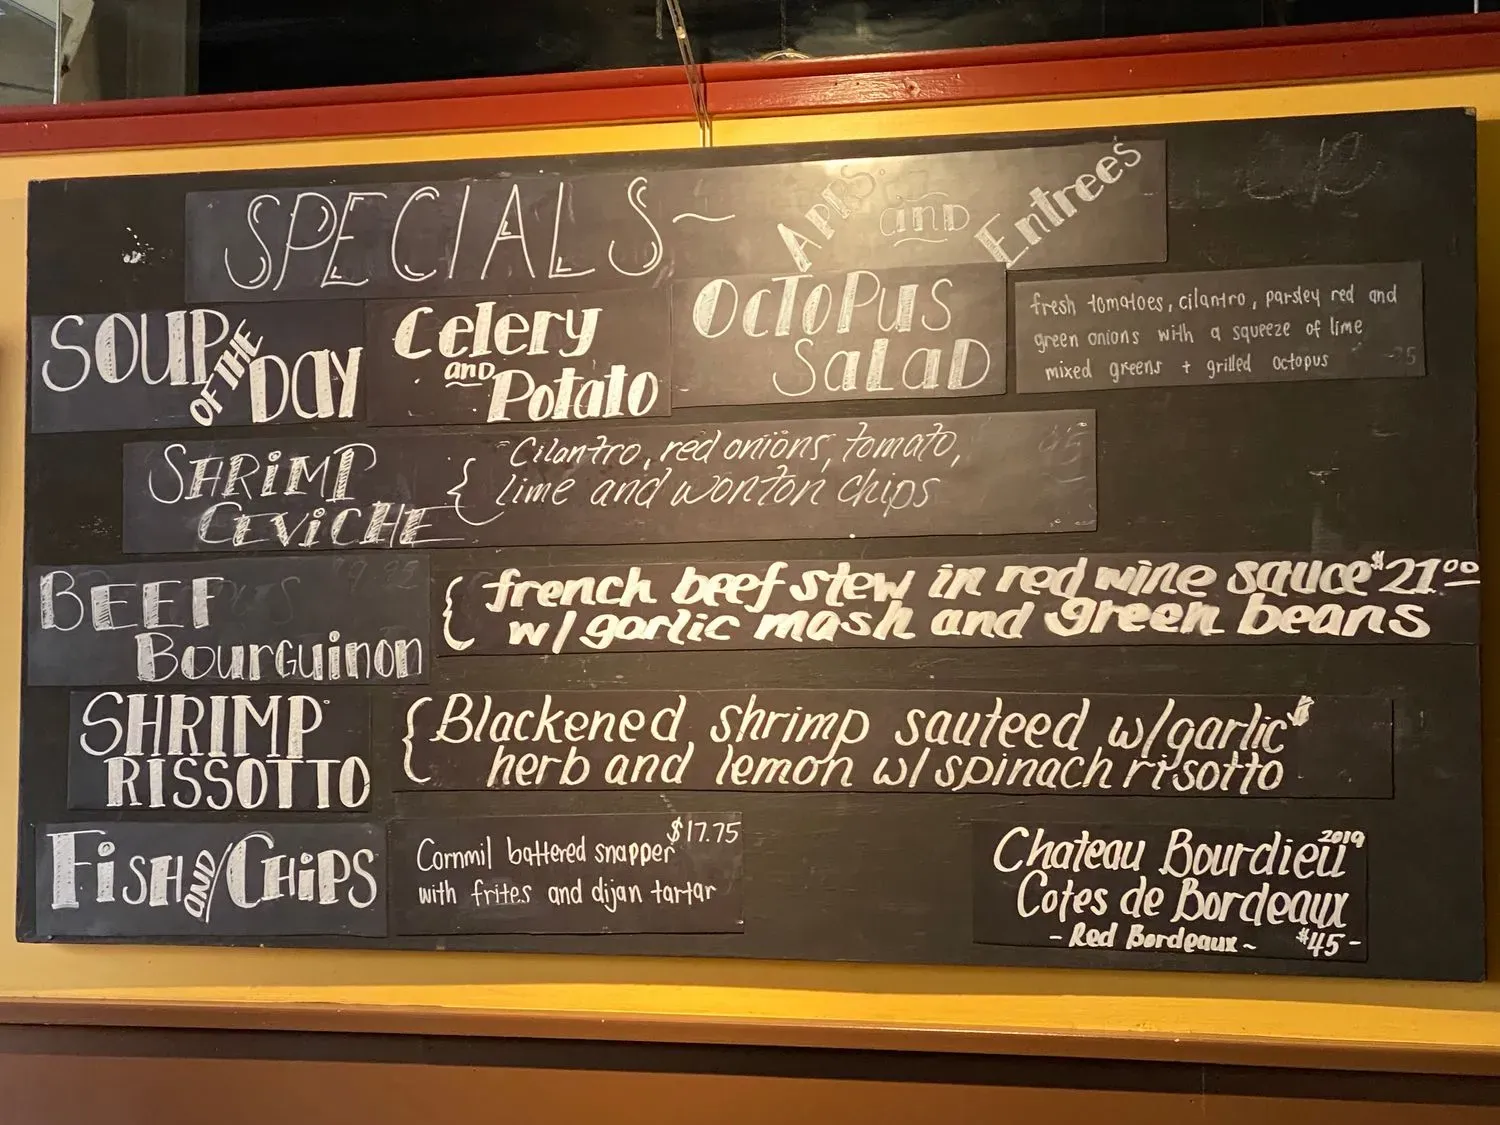 SPECIALS ~ APPS and Entrees
SOUP OF THE DAY
Celery and Potato
OCTOPUS SALAD
fresh tomatoes, cilantro, parsley red and
green onions with a squeeze of lime
mixed greens + grilled octopus
SHRIMP CEVICHE
{ Cilantro, red onions, tomato,
lime and wonton chips
BEEF Bourguinon
{ french beef stew in red wine sauce $21.00
w/ garlic mash and green beans
SHRIMP RISSOTTO
{ Blackened shrimp sauteed w/garlic
herb and lemon w/ spinach risotto
FISH AND/CHIPS
$17.75
Cornmil battered snapper
with frites and dijan tartar
2019
Chateau Bourdieu
Cotes de Bordeaux
- Red Bordeaux ~ $45 -